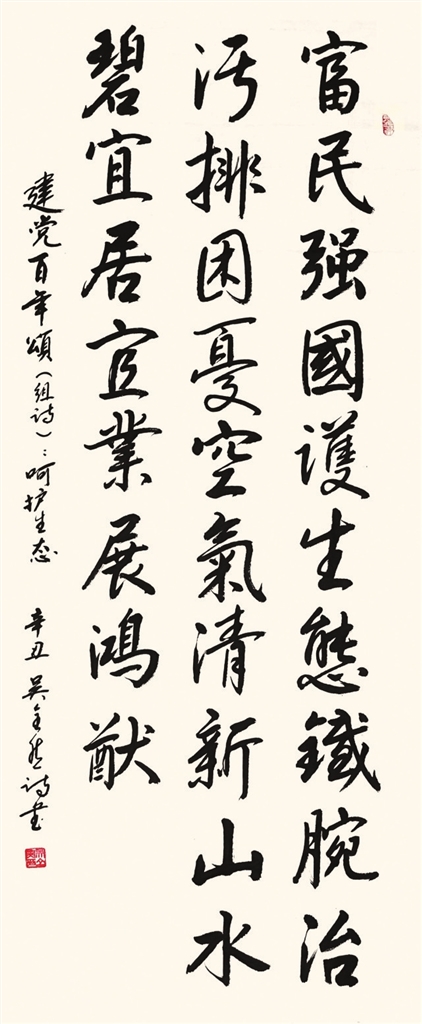 富民强國護生態鐵腕治
污排困憂空氣清新山水
碧宜居宜業展鴻猷
建党百年頌（组诗）：呵护生态 辛丑 吴 诗书